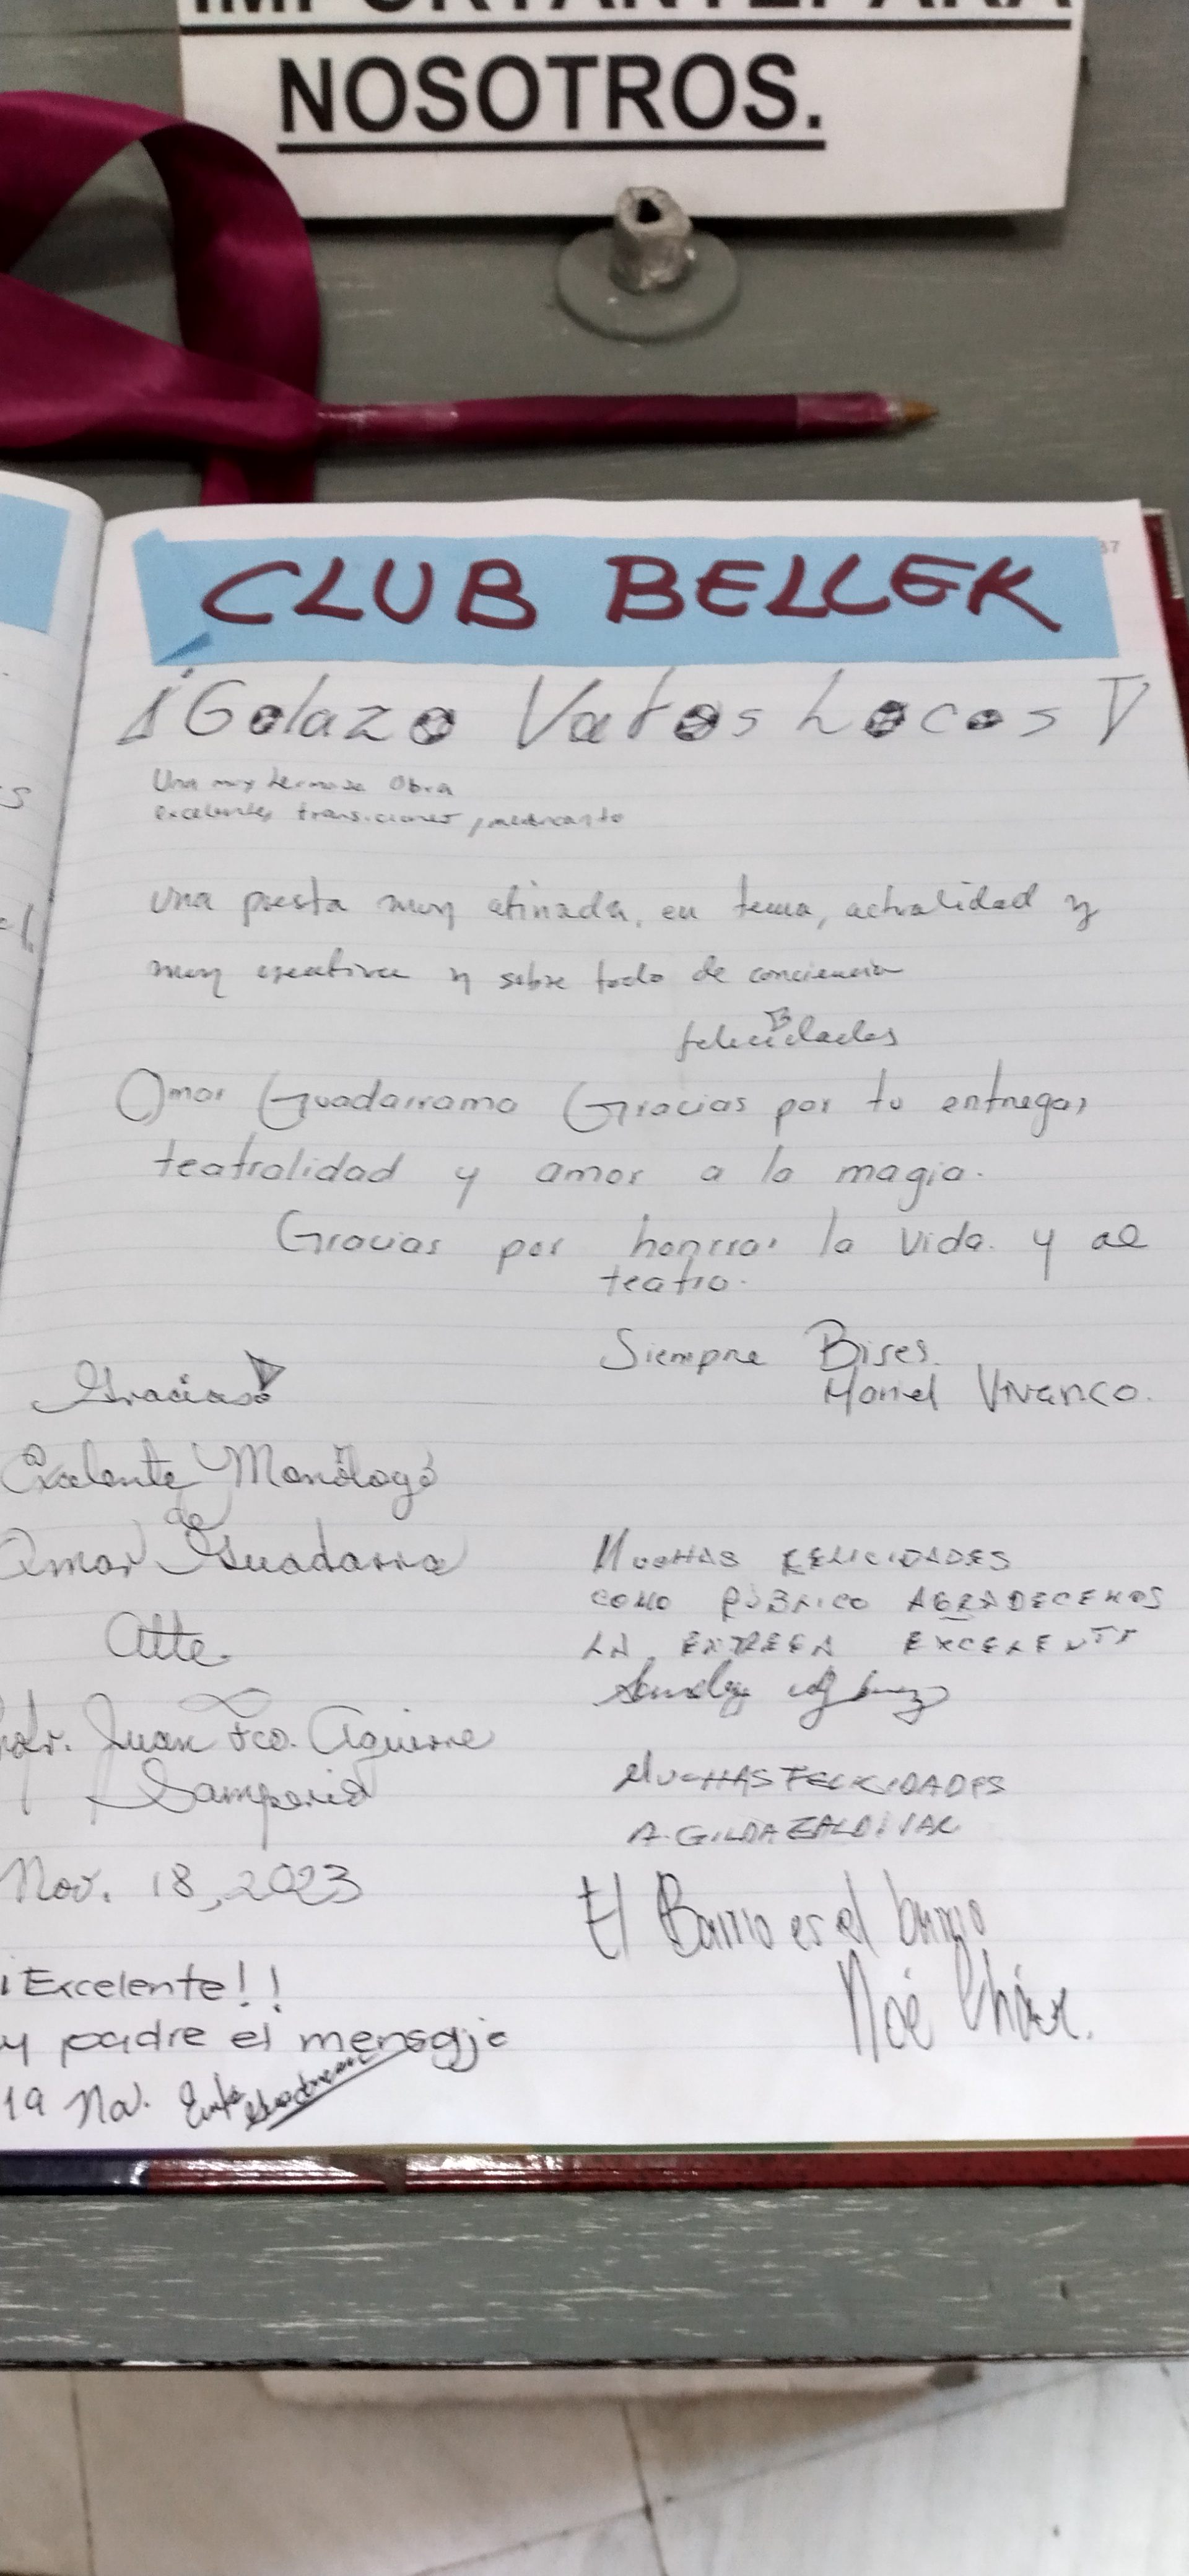 IMPORTANTE PARA
NOSOTROS.
37
CLUB BELLEK
¡Golazo Vatos Locos V
Una muy hermosa Obra
excelentes transiciones, me encanto
una puesta muy atinada, en tema, actualidad y
muy creativa y sobre todo de conciencia
felicidades
Omar Guadarrama Gracias por tu entrega,
teatralidad y amor a la magia.
Gracias por honrrar la vida y al
teatro.
Siempre Bises.
Vivanco.
Gracias
Exelente Monólogo
de
Omar Guadarra
Atte.
Profr. Juan Fco. Aguirre
Samperio
Nov. 18, 2023
¡Excelente!!
y padre el mensaje
19 Nov.
MUCHAS FELICIDADES
COMO PÚBLICO AGRADECEMOS
LA ENTREGA EXCELENTE
MUCHAS FELICIDADES
A. GILDA ZALDIVAR
El Barrio es el barrio
Noé Cháv.